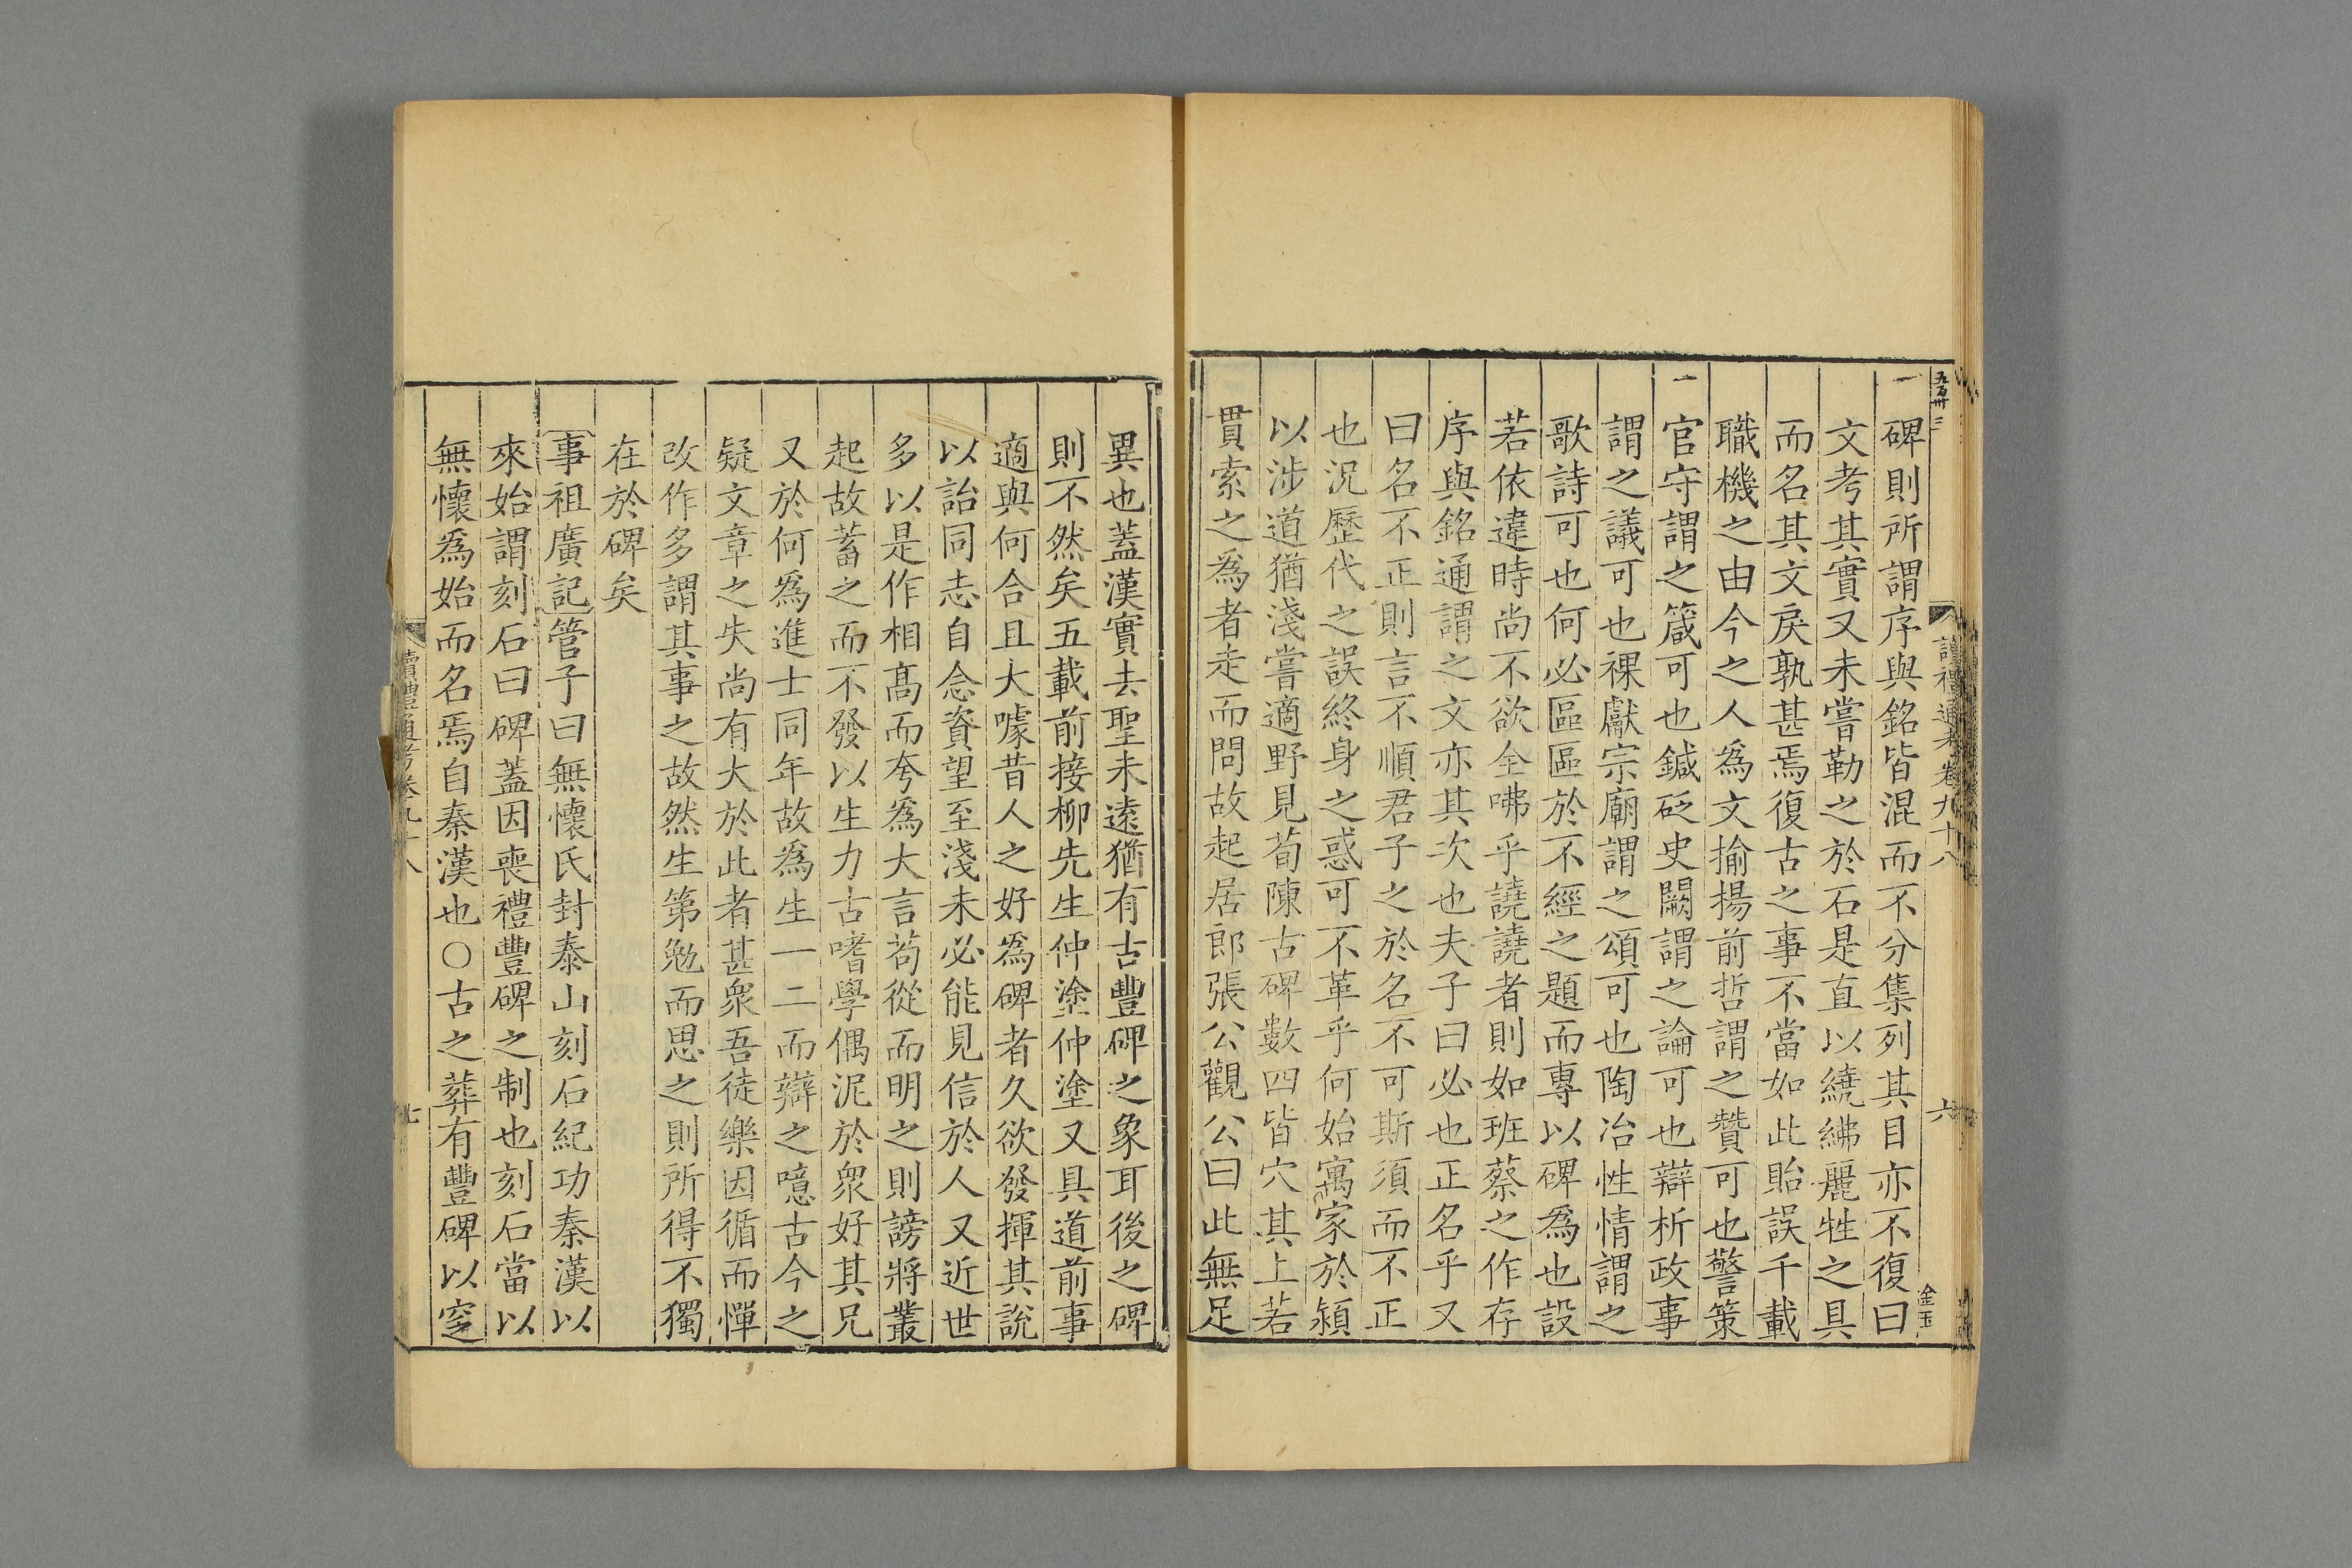 五百卅三
讀禮通考卷九十八
六
金玉
碑則所謂序與銘皆混而不分集列其目亦不復曰
文考其實又未嘗勒之於石是直以繞紼麗牲之具
而名其文戾孰甚焉復古之事不當如此貽誤千載
職機之由今之人爲文揄揚前哲謂之贊可也警策
官守謂之箴可也鍼砭史闕謂之論可也辯析政事
謂之議可也祼獻宗廟謂之頌可也陶冶性情謂之
歌詩可也何必區區於不經之題而專以碑爲也設
若依違時尚不欲全咈乎譊譊者則如班蔡之作存
序與銘通謂之文亦其次也夫子曰必也正名乎又
曰名不正則言不順君子之於名不可斯須而不正
也況歷代之誤終身之惑可不革乎何始寓家於潁
以涉道猶淺嘗適野見荀陳古碑數四皆穴其上若
貫索之爲者走而問故起居郎張公觀公曰此無足
異也蓋漢實去聖未遠猶有古豐碑之象耳後之碑
則不然矣五載前接柳先生仲塗仲塗又具道前事
適與何合且大噱昔人之好爲碑者久欲發揮其說
以詒同志自念資望至淺未必能見信於人又近世
多以是作相高而夸爲大言苟從而明之則謗將叢
起故蓄之而不發以生力古嗜學偶泥於衆好其兄
又於何爲進士同年故爲生一二而辯之噫古今之
疑文章之失尚有大於此者甚衆吾徒樂因循而憚
改作多謂其事之故然生第勉而思之則所得不獨
在於碑矣
事祖廣記管子曰無懷氏封泰山刻石紀功秦漢以
來始謂刻石曰碑蓋因喪禮豐碑之制也刻石當以
無懷爲始而名焉自秦漢也○古之葬有豐碑以窆
讀禮通考卷九十八
七